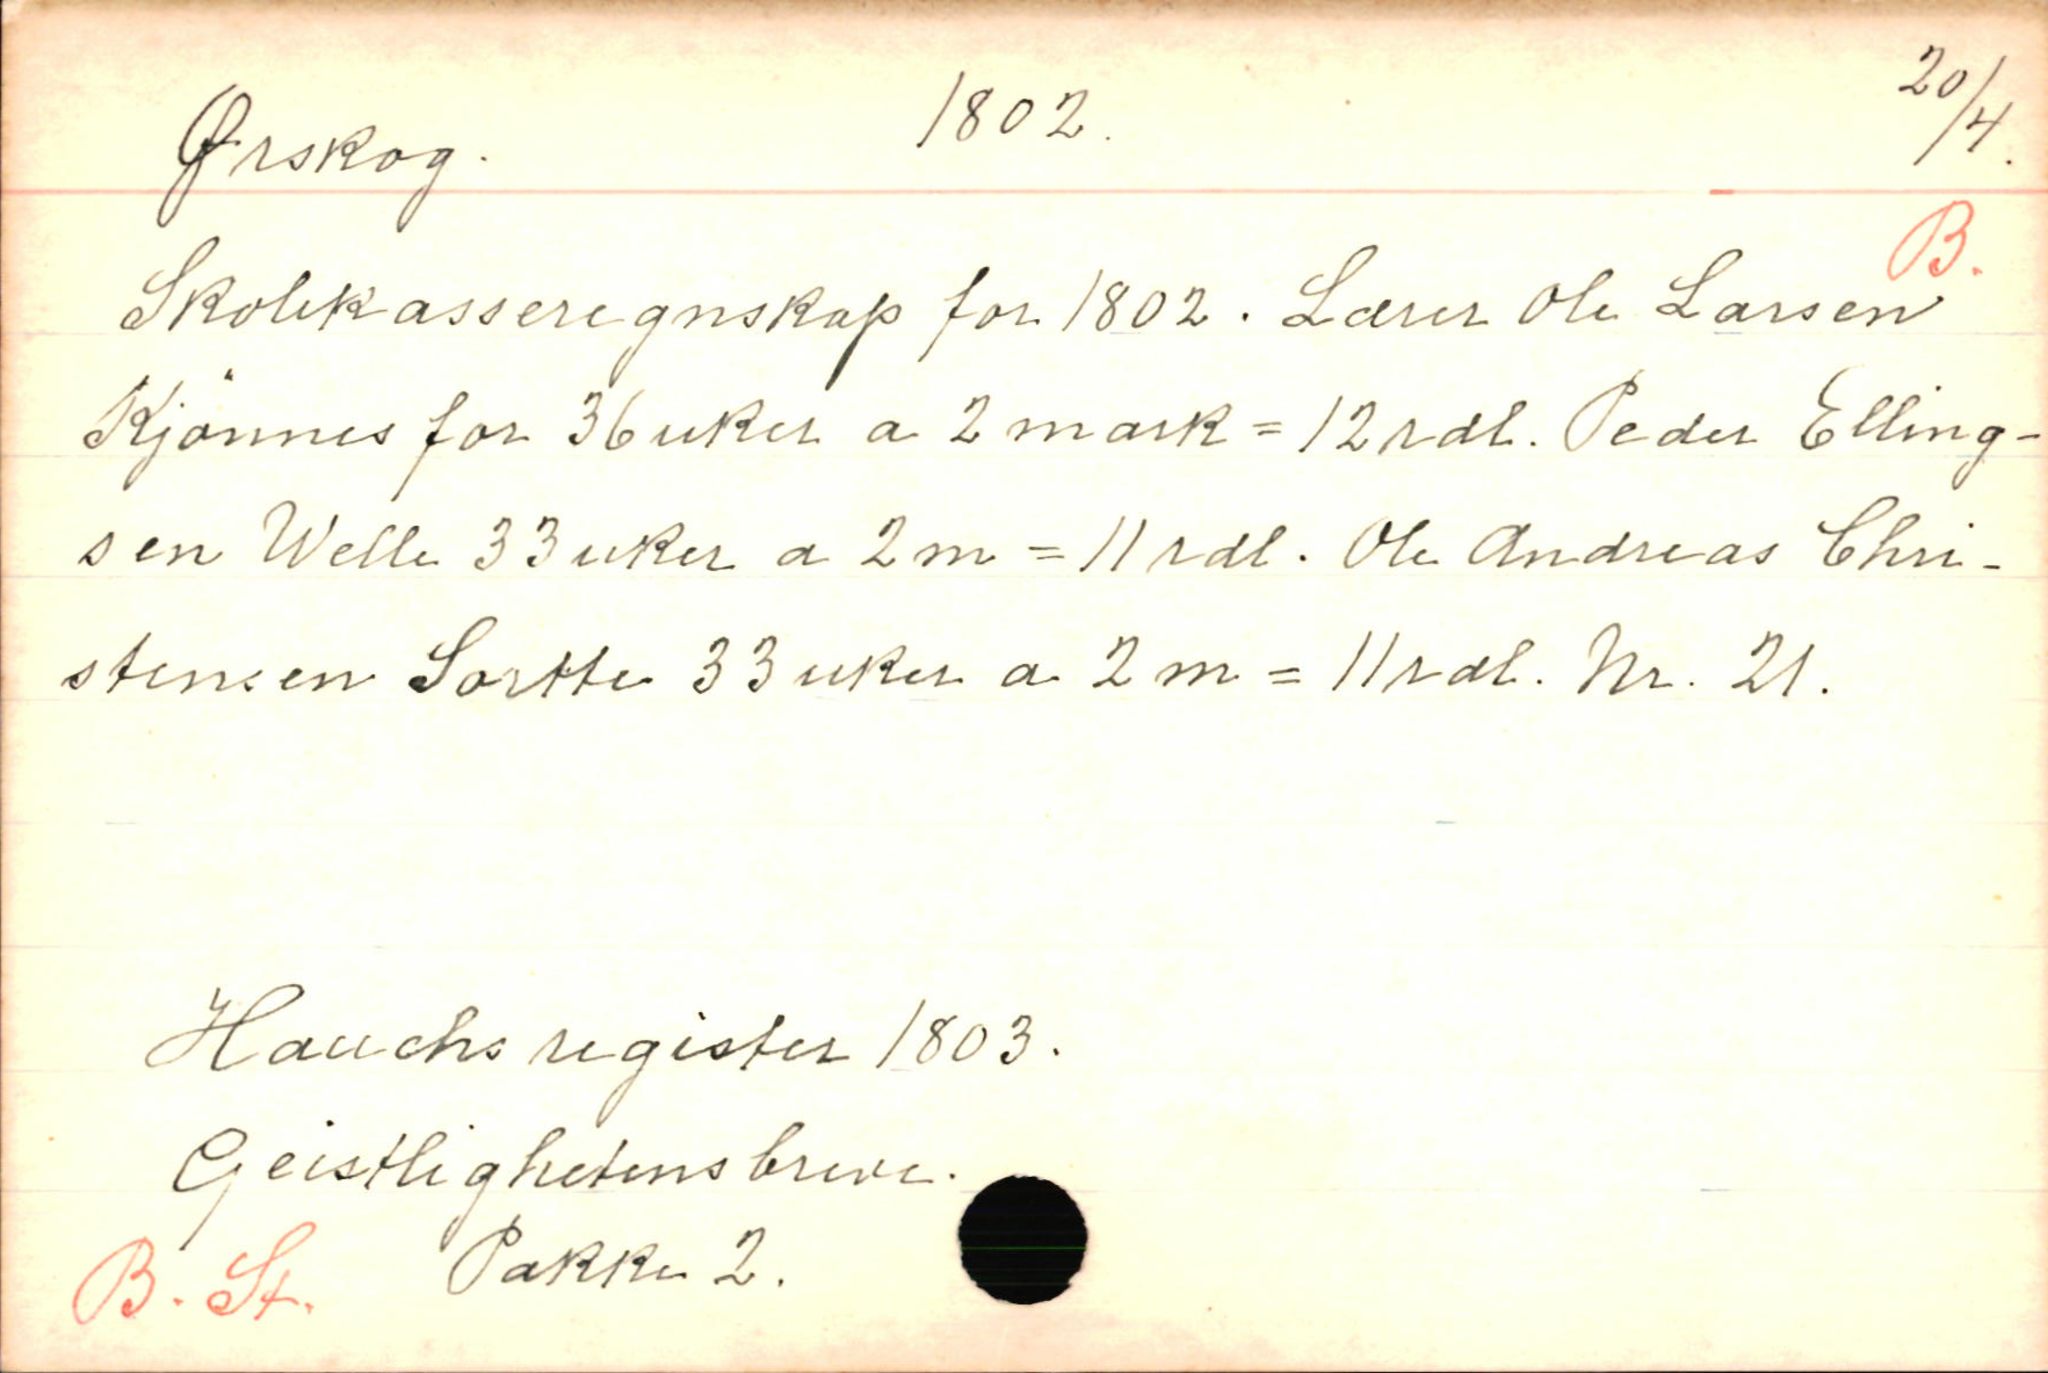 Ørskog. 1802. 20/4.
B.
Skolekasseregnskap for 1802. Lærer Ole Larsen
Kjönnes for 36 uker a 2 mark = 12 rdl. Peder Elling-
sen Welle 33 uker a 2 m = 11 rdl. Ole Andreas Chri-
stensen Sortte 33 uker a 2 m = 11 rdl. Nr. 21.
Hauchs register 1803.
Geistlighetens breve.
B. St. Pakke 2.